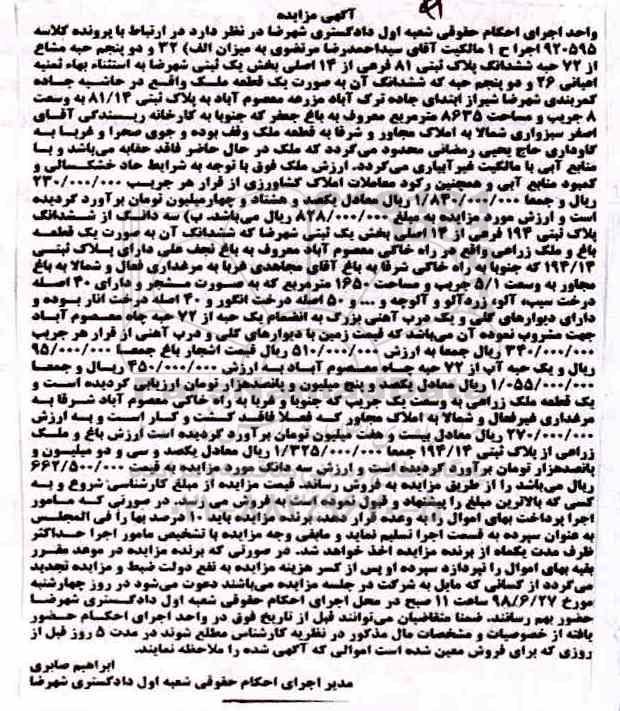 آگهی مزایده
واحد اجرای احکام حقوقی شعبه اول دادگستری شهرضا در نظر دارد در ارتباط با پرونده کلاسه
۹۲۰۵۹۵ اجرا ح ۱ مالکیت آقای سیداحمدرضا مرتضوی به میزان الف) ۳۲ و دو پنجم حبه مشاع
از ۷۲ حبه ششدانگ پلاک ثبتی ۸۱ فرعی از ۱۴ اصلی بخش یک ثبتی شهرضا به استثناء بهاء ثمنیه
اعیانی ۲۶ و دو پنجم حبه که ششدانگ آن به صورت یک قطعه ملک واقع در حاشیه جاده
کمربندی شهرضا شیراز ابتدای جاده ترک آباد مزرعه معصوم آباد به پلاک ثبتی ۸۱/۱۴ به وسعت
۸ جریب و مساحت ۸۶۳۵ مترمربع معروف به باغ جعفر که جنوبا به کارخانه ریسندگی آقای
اصغر سبزواری شمالا به املاک مجاور و شرقا به قطعه ملک وقف بوده و جوی صحرا و غربا به
گاوداری حاج یحیی رمضانی محدود می‌گردد که ملک در حال حاضر فاقد حقابه می‌باشد و با
منابع آبی با مالکیت غیرآبیاری می‌گردد. ارزش ملک فوق با توجه به شرایط حاد خشکسالی و
کمبود منابع آبی و همچنین رکود معاملات املاک کشاورزی از قرار هر جریب ۲۳۰/۰۰۰/۰۰۰
ریال و جمعا ۱/۸۴۰/۰۰۰/۰۰۰ ریال معادل یکصد و هشتاد و چهارمیلیون تومان برآورد گردیده
است و ارزش مورد مزایده به مبلغ ۸۲۸/۰۰۰/۰۰۰ ریال می‌باشد. ب) سه دانگ از ششدانگ
پلاک ثبتی ۱۹۴ فرعی از ۱۴ اصلی بخش یک ثبتی شهرضا که ششدانگ آن به صورت یک قطعه
باغ و ملک زراعی واقع در راه خاکی معصوم آباد معروف به باغ نجف علی دارای پلاک ثبتی
۱۹۴/۱۴ که جنوبا به راه خاکی شرقا به باغ آقای مجاهدی غربا به مرغداری فعال و شمالا به باغ
مجاور به وسعت ۵/۱ جریب و مساحت ۱۶۵۰ مترمربع که به صورت مشجر و دارای ۴۰ اصله
درخت سیب، آلو، زردآلو و آلوچه و ... و ۵۰ اصله درخت انگور و ۴۰ اصله درخت انار بوده و
دارای دیوارهای گلی و یک درب آهنی بزرگ به انضمام یک حبه از ۷۲ حبه چاه معصوم آباد
جهت مشروب نموده آن می‌باشد که قیمت زمین با دیوارهای گلی و درب آهنی از قرار هر جریب
۳۴۰/۰۰۰/۰۰۰ ریال جمعا به ارزش ۵۱۰/۰۰۰/۰۰۰ ریال قیمت اشجار باغ جمعا ۹۵/۰۰۰/۰۰۰
ریال و یک حبه آب از ۷۲ حبه چاه معصوم آباد به ارزش ۴۵۰/۰۰۰/۰۰۰ ریال و جمعا
۱/۰۵۵/۰۰۰/۰۰۰ ریال معادل یکصد و پنج میلیون و پانصدهزار تومان ارزیابی گردیده است و
یک قطعه ملک زراعی به وسعت یک جریب که جنوبا و غربا به راه خاکی معصوم آباد شرقا به
مرغداری غیرفعال و شمالا به املاک مجاور که فعلا فاقد کشت و کار است و به ارزش
۲۷۰/۰۰۰/۰۰۰ ریال معادل بیست و هفت میلیون تومان برآورد گردیده است ارزش باغ و ملک
زراعی از پلاک ثبتی ۱۹۴/۱۴ جمعا ۱/۳۲۵/۰۰۰/۰۰۰ ریال معادل یکصد و سی و دو میلیون و
پانصدهزار تومان برآورد گردیده است و ارزش سه دانگ مورد مزایده به قیمت ۶۶۲/۵۰۰/۰۰۰
ریال می‌باشد را از طریق مزایده به فروش رساند. قیمت مزایده از مبلغ کارشناسی شروع و به
کسی که بالاترین مبلغ را پیشنهاد و قبول نموده است به فروش می رسد. در صورتی که مامور
اجرا پرداخت بهای اموال را به وعده قرار دهد، برنده مزایده باید ۱۰ درصد بها را فی المجلس
به عنوان سپرده به قسمت اجرا تسلیم نماید و مابقی وجه مزایده با تشخیص مامور اجرا حداکثر
ظرف مدت یکماه از برنده مزایده اخذ خواهد شد. در صورتی که برنده مزایده در موعد مقرر
بقیه بهای اموال را نپردازد سپرده او پس از کسر هزینه مزایده به نفع دولت ضبط و مزایده تجدید
می‌گردد از کسانی که مایل به شرکت در جلسه مزایده می‌باشند دعوت می‌شود در روز چهارشنبه
مورخ ۹۸/۶/۲۷ ساعت ۱۱ صبح در محل اجرای احکام حقوقی شعبه اول دادگستری شهرضا
حضور بهم رسانند. ضمنا متقاضیان می‌توانند قبل از تاریخ فوق در واحد اجرای احکام حضور
یافته از خصوصیات و مشخصات مال مذکور در نظریه کارشناس مطلع شوند در مدت ۵ روز قبل از
روزی که برای فروش معین شده است اموالی که آگهی شده را ملاحظه نمایند.
ابراهیم صابری
مدیر اجرای احکام حقوقی شعبه اول دادگستری شهرضا